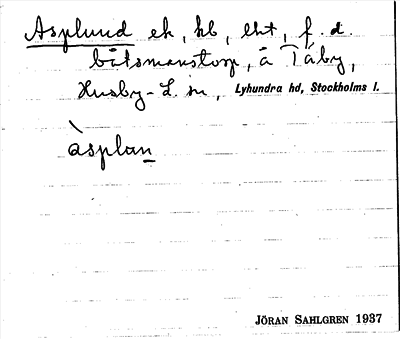 Asplund ek, hb, eht, f. d.
båtsmanstorp, å Täby,
Husby-L. sn, Lyhundra hd, Stockholms l.
àsplan
JÖRAN SAHLGREN 1937